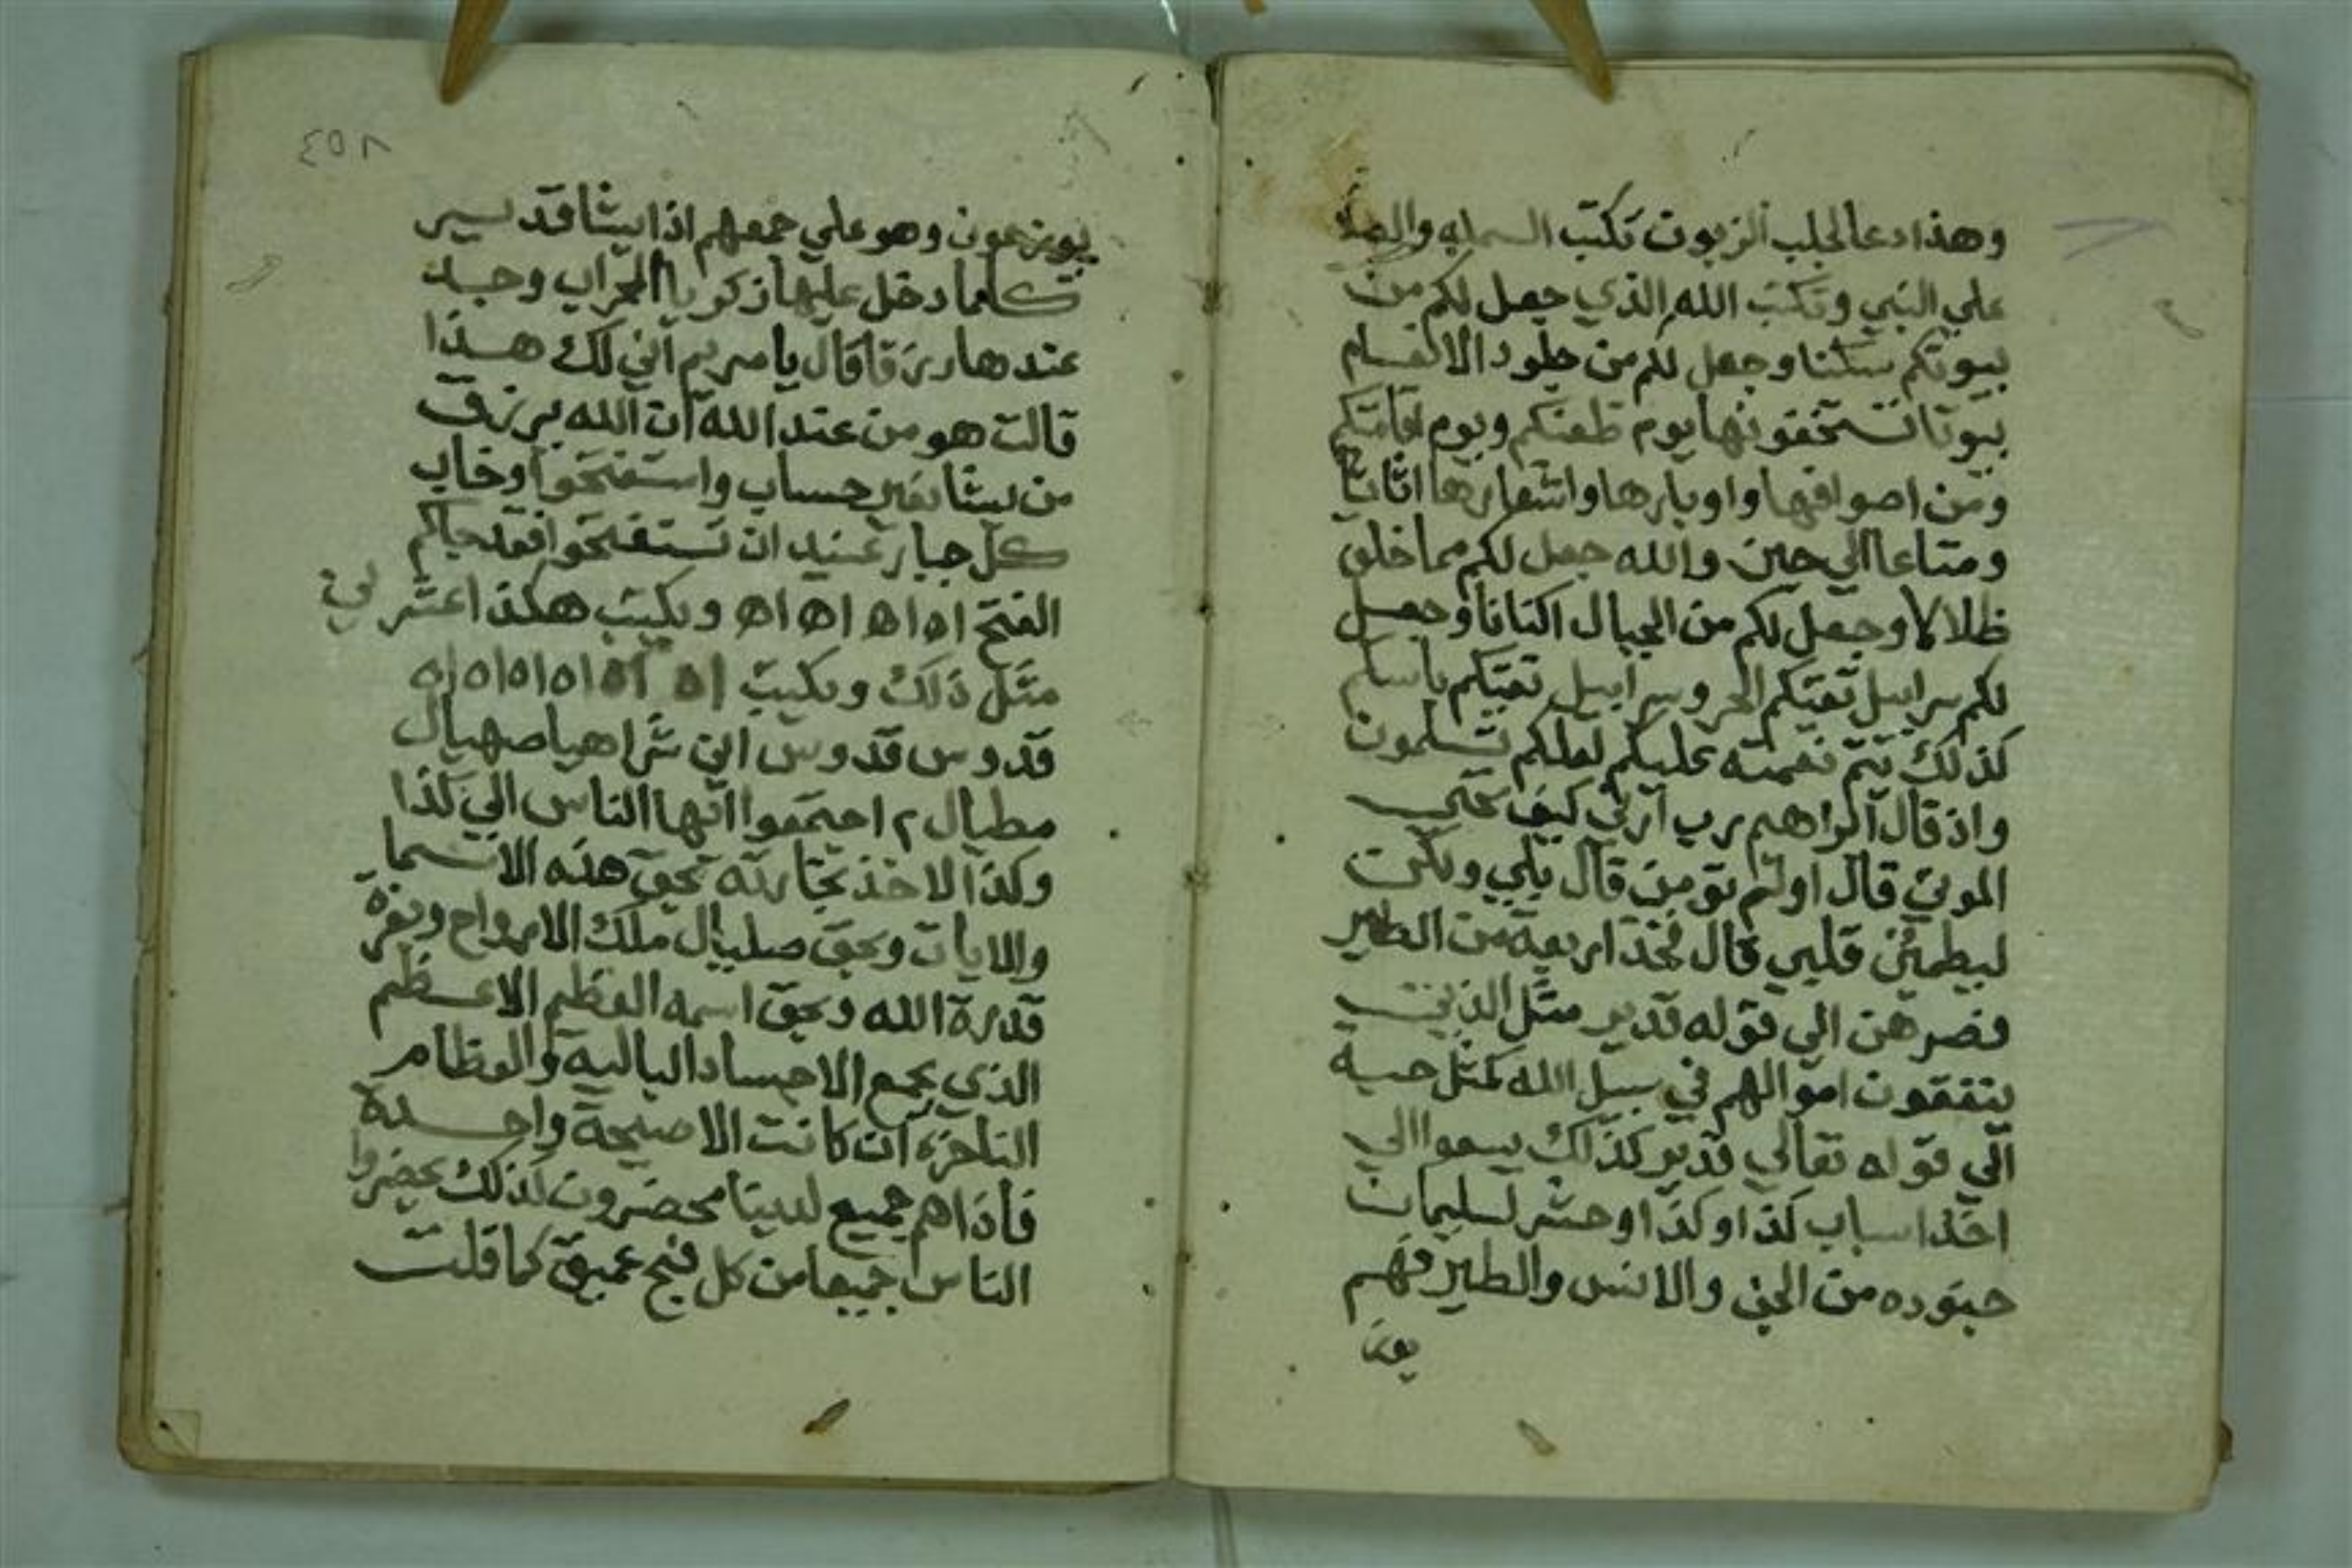 وهذا دعا لجلب الزبون تكتب البسمله والصلاة
علي النبي وتكتب الله الذي جعل لكم من
بيوتكم سكنا وجعل لكم من جلود الانعام
بيوتا تستخفونها يوم ظعنكم ويوم اقامتكم
ومن اصوافها واوبارها واشعارها اثاثا
ومتاعا الي حين والله جعل لكم مما خلق
ظلالا وجعل لكم من الجبال اكنانا وجعل
لكم سرابيل تقيكم الحر وسرابيل تقيكم باسكم
كذلك يتم نعمته عليكم لعلكم تسلمون
واذ قال ابراهيم رب ارني كيف تحي
الموتي قال اولم تومن قال بلي ولكن
ليطمئن قلبي قال فخذ اربعة من الطير
فصرهن الي قوله قدير مثل الذين
ينفقون اموالهم في سبيل الله كمثل حبة
الي قوله تعالي قدير كذلك يسعوا الي
اخذ اسباب كذا وكذا وحشر لسليمان
جنوده من الجن والانس والطير فهم
يوز
٢٥٨
يوزعون وهو علي جمعهم اذا يشا قدير
كلما دخل عليها زكريا المحراب وجد
عندها رزقا قال يا مريم اني لك هذا
قالت هو من عند الله ان الله يرزق
من يشا بغير حساب واستفتحوا وخاب
كل جبار عنيد ان تستفتحوا فقد جاكم
الفتح اه اه اه اه اه ويكتب هكذا
مثل ذلك ويكتب اه اه اه اه اه اه اه
قدوس قدوس شراهيا صهيال
مطيال ٢ اجتمعوا ايها الناس الي كذا
وكذا لاخذ تجارته بحق هذه الاسما
والايات وبحق صليال ملك الارواح
قدرة الله وبحق اسمه العظيم الاعظم
الذي يجمع الاجساد الباليه والعظام
الناخره ان كانت الا صيحة واحدة
فاذا هم جميع لدينا محضرون كذلك يحضروا
الناس جميعا من كل فج عميق كما قلت